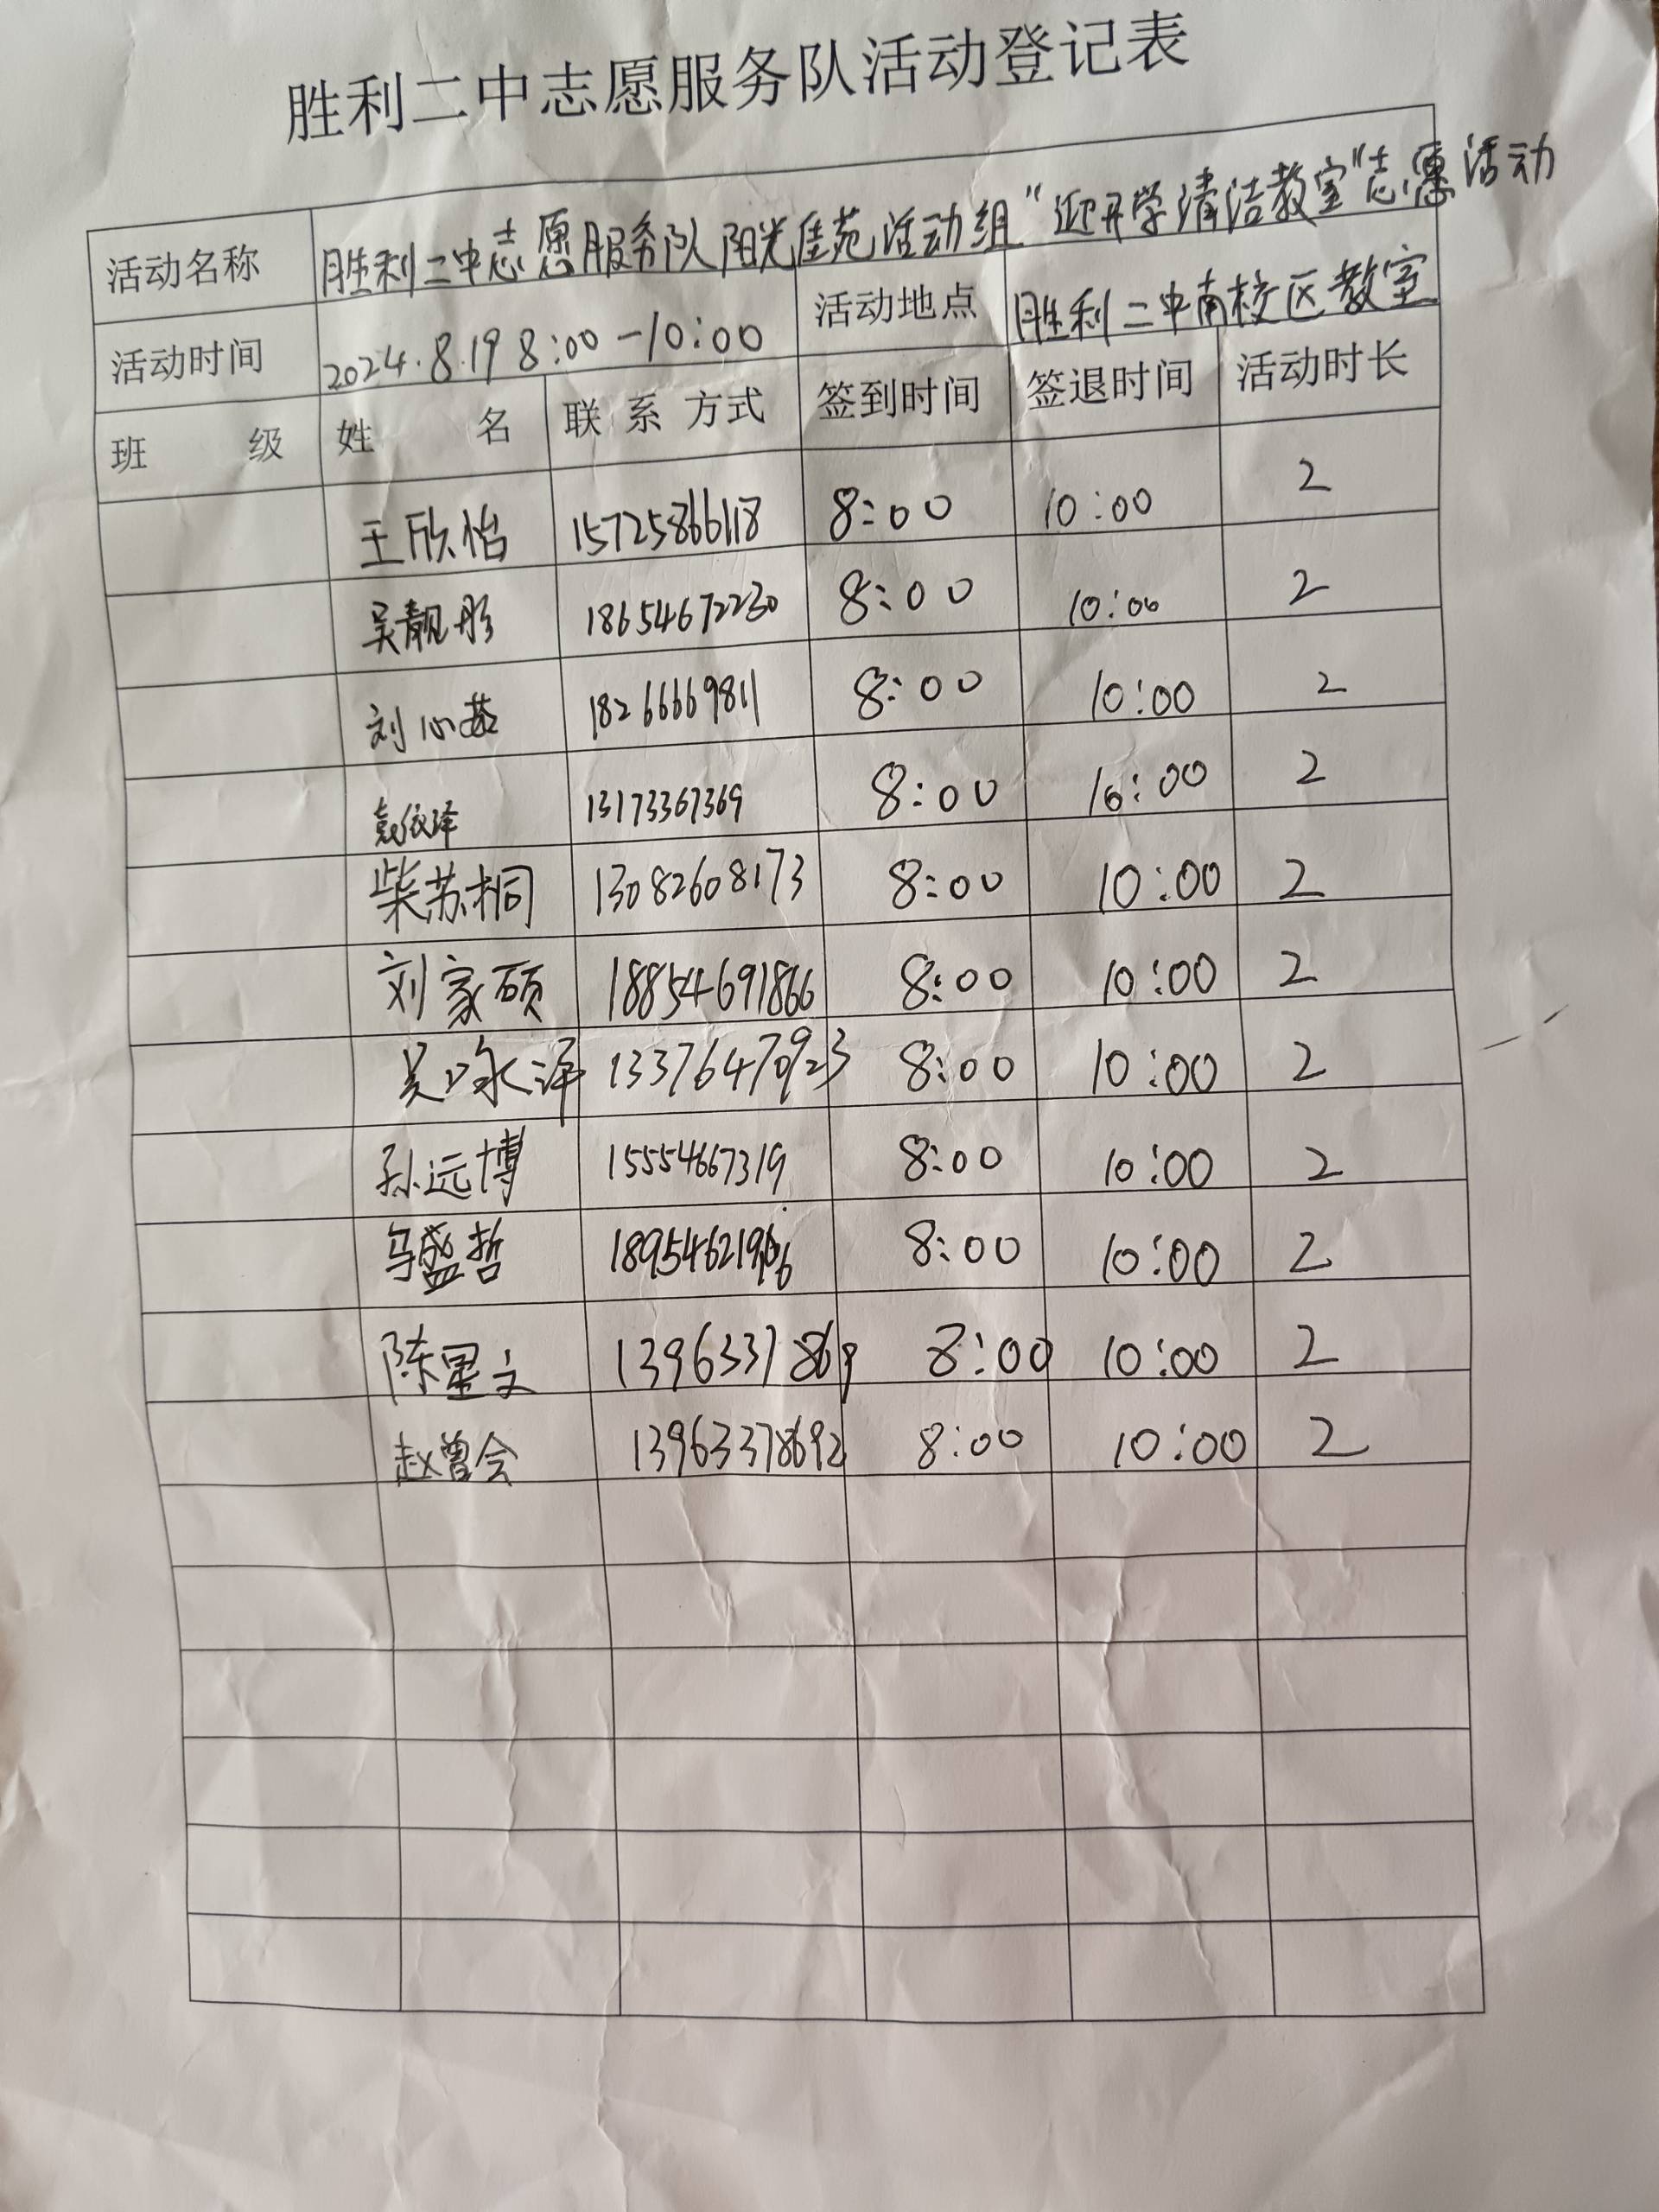 胜利二中志愿服务队活动登记表
活动名称 胜利二中志愿服务队阳光佳苑活动组"迎开学清洁教室"志愿活动
活动时间 2024.8.19 8:00-10:00 活动地点 胜利二中南校区教室
班 级 姓 名 联系方式 签到时间 签退时间 活动时长
王欣怡 15725866118 8:00 10:00 2
吴靓彤 18654672230 8:00 10:00 2
刘心茹 18266669811 8:00 10:00 2
袁依泽 13173367369 8:00 10:00 2
柴苏桐 13082608173 8:00 10:00 2
刘家硕 18854691866 8:00 10:00 2
吴咏泽 13376470923 8:00 10:00 2
孙远博 15554667319 8:00 10:00 2
盛哲 8:00 10:00 2
陈墨文 8:00 10:00 2
赵曾会 13963378692 8:00 10:00 2